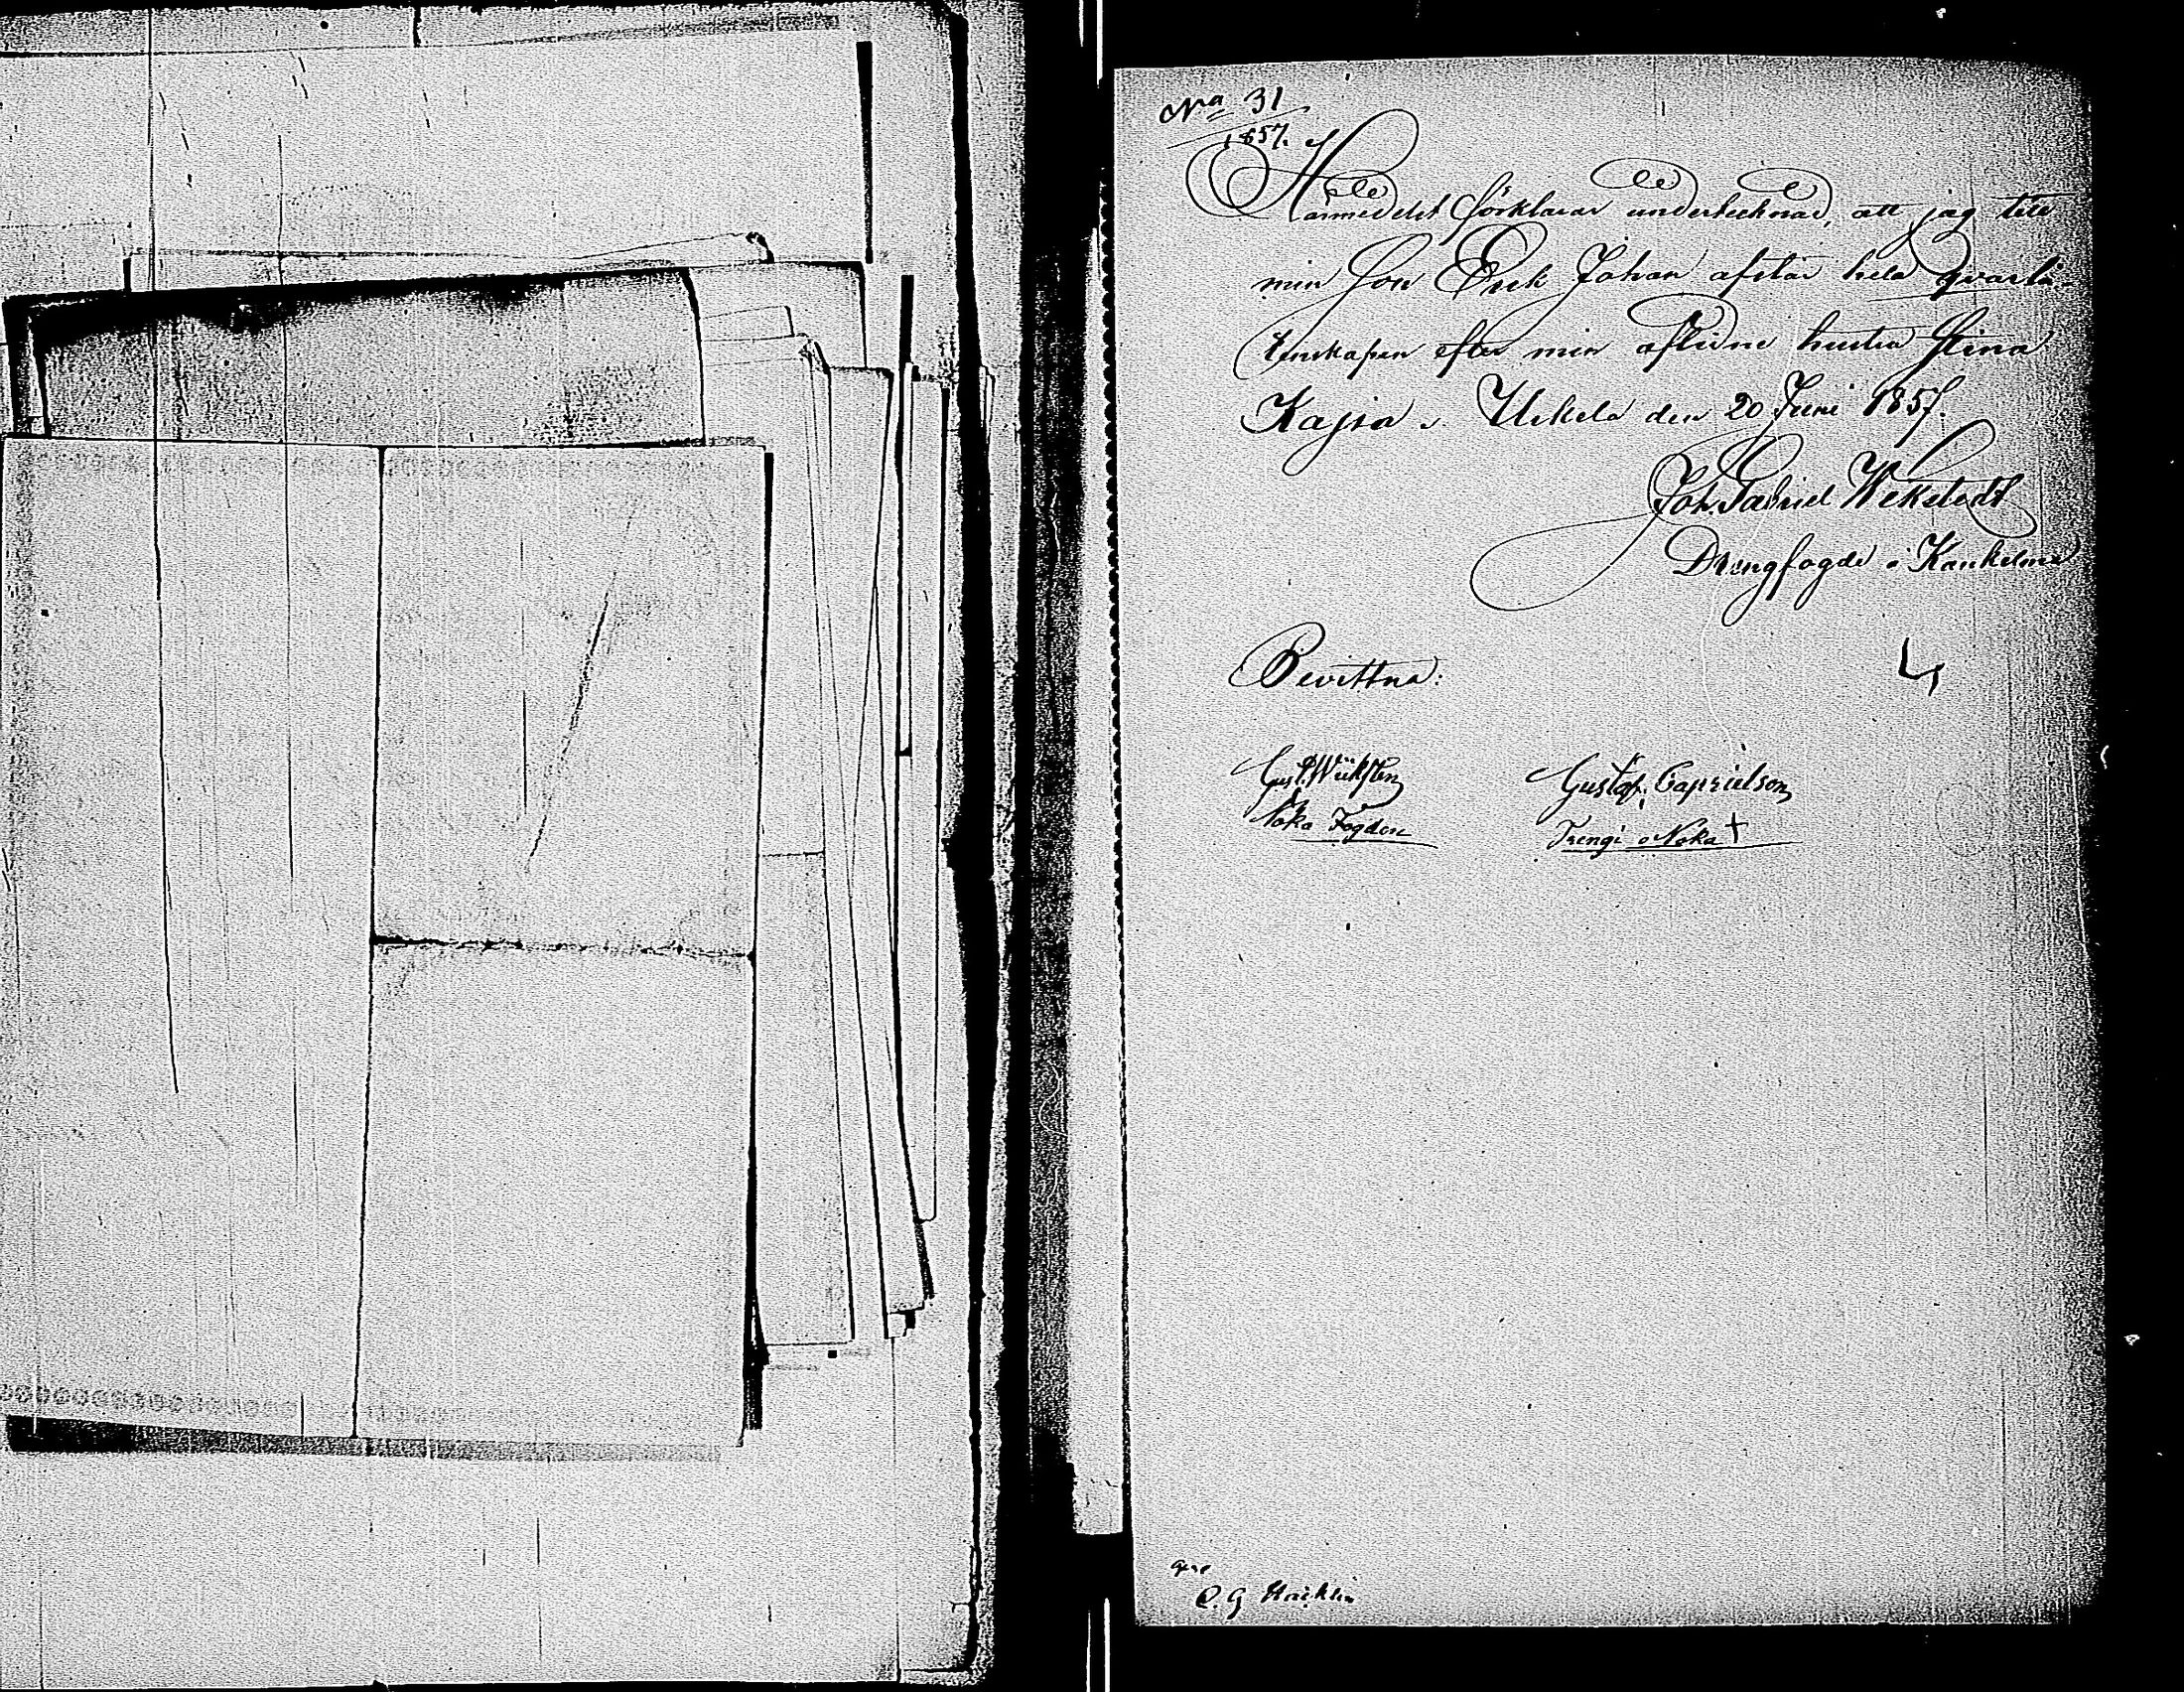 No 31
1857.
Härmedelst förklarar undertecknad, att jag till
min Son Erik Johan afstår hela qvarlå-
tenskapen efter min aflidne hustru Stina
Kajsa. Uskela den 20 Juni 1857.
Joh. Gabriel Wekstedt
Drengfogde i Kankelma
Bevittna:
4
Gust. Wiksten Gustaf. Caprielson
Noka Fogden Trengi Noka +